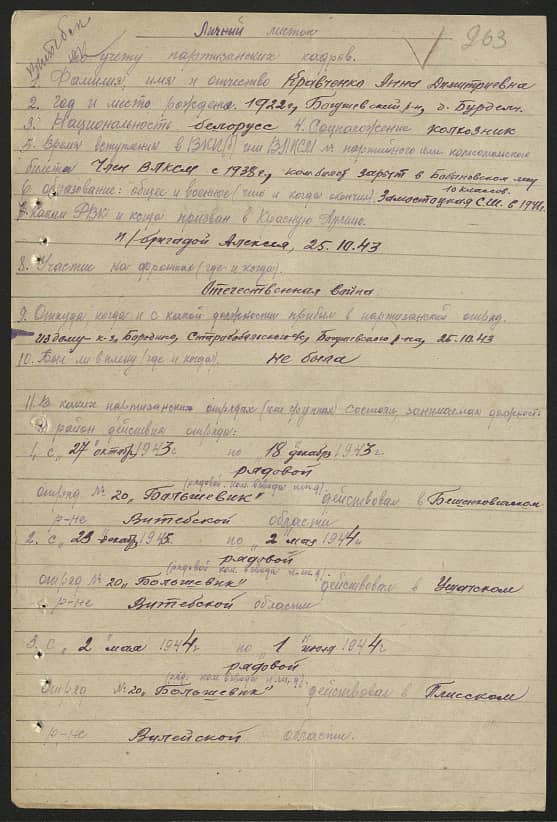 Личный листок
263
по учету партизанских кадров.
1. Фамилия, имя и отчество Кравченко Анна Дмитриевна
2. Год и место рождения 1922 г., Богушевский р-н, д.
3. Национальность белорусс 4. Соцположение колхозник
5. Время вступления в ВКП(б) или ВЛКСМ № партийного или комсомольского
билета Член ВЛКСМ с 1938 г., комбилет зарыт в лесу
6. Образование: общее и военное (что и когда окончил) 10 классов. СШ. в 1941 г.
7. Каким РВК и когда призван в Красную Армию.
п/бригадой Алексея, 25.10.43
8. Участие на фронтах (где и когда).
Отечественная война
9. Откуда, когда и с какой должности прибыл в партизанский отряд.
из дому - к-з, Бородино, Богушевского р-на, 25.10.43
10. Был ли в плену (где и когда). Не была
11. В каких партизанских отрядах (или группах) состоял, занимаемая должность
и район действия отряда:
1. с „27" октября 1943 г. по „18" декабря 1943 г.
рядовой
(рядовой, ком. взвода и т.д.)
отряд № 20 „Большевик" действовал в Бешенковичском
р-не Витебской области
2. с „23" декабря 1943. по „2" мая 1944 г.
рядовой
(рядовой ком. взвода и т.д.)
отряд № 20 „Большевик" действовал в Ушачском
р-не Витебской области
3. с „2" мая 1944 г. по „1" 1944 г.
рядовой
(ряд. ком взвода и т.д.)
отряд № 20 „Большевик" действовал в Плисском
р-не Вилейской области.